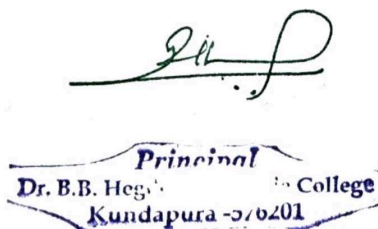 Principal
Dr. B.B. College
Kundapura -576201